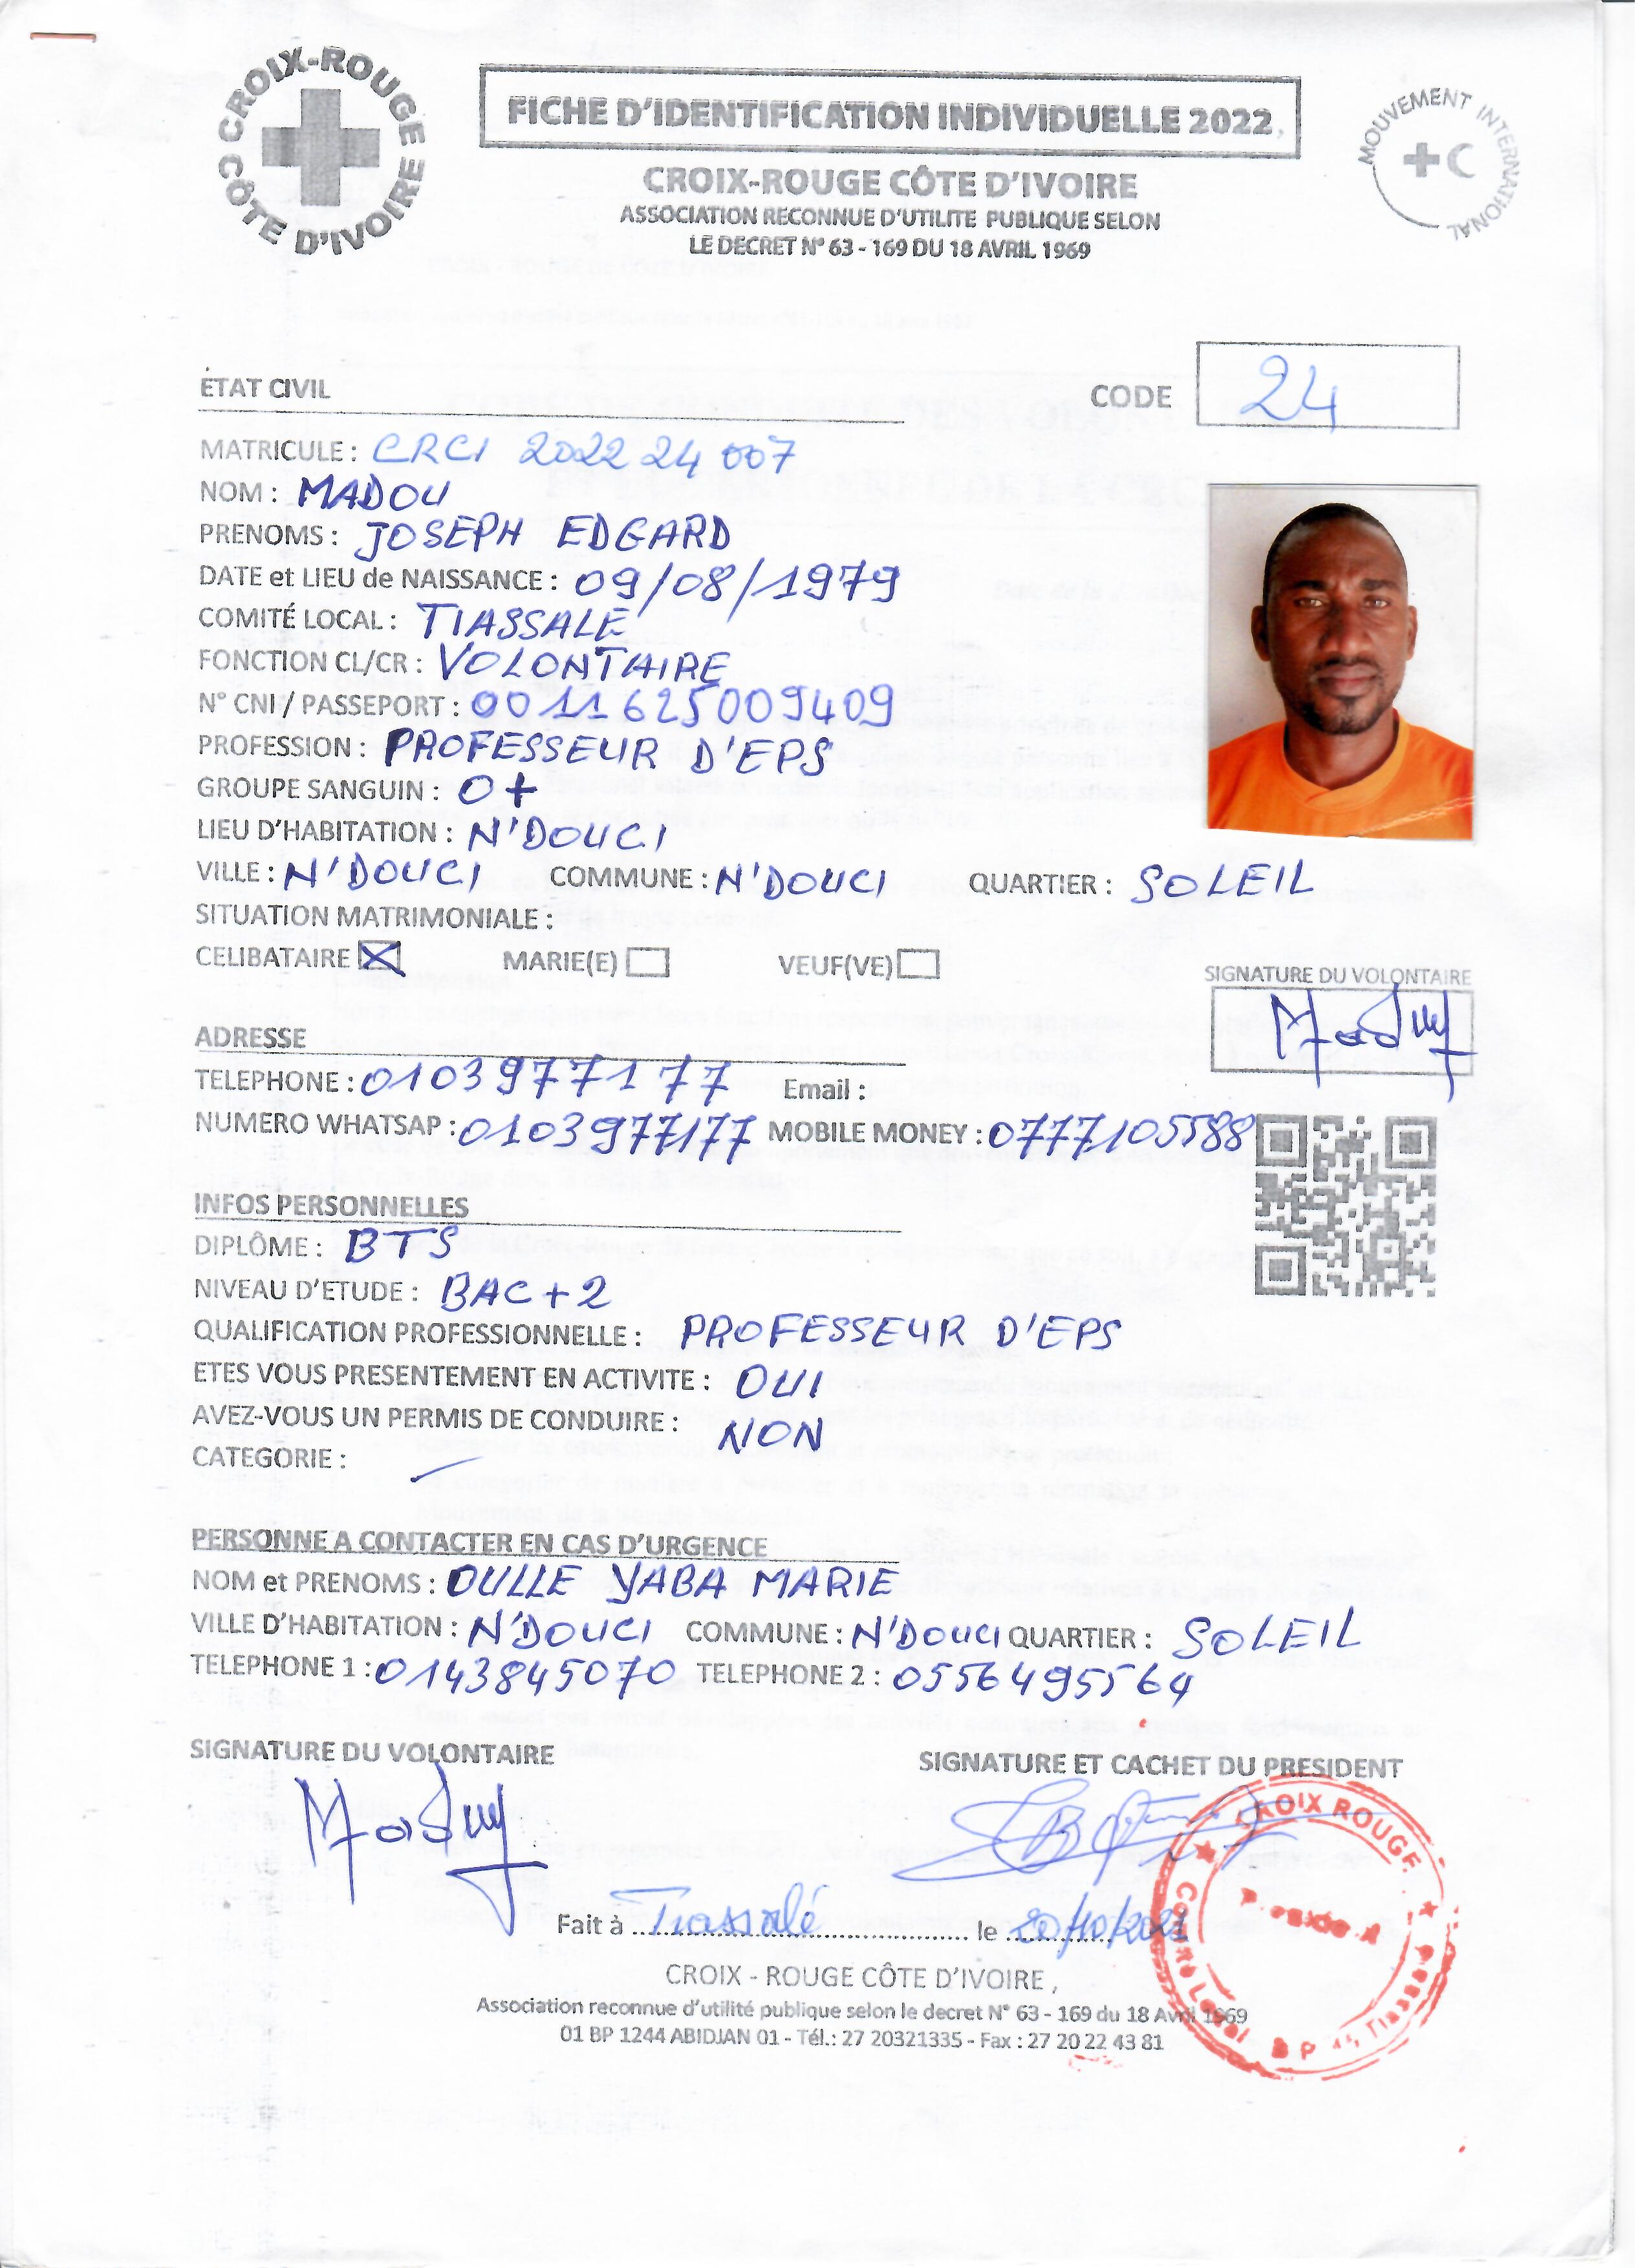 CROIX-ROUGE CÔTE D'IVOIRE
FICHE D'IDENTIFICATION INDIVIDUELLE 2022
MOUVEMENT INTERNATIONAL
CROIX-ROUGE CÔTE D'IVOIRE
ASSOCIATION RECONNUE D'UTILITE PUBLIQUE SELON
LE DECRET N° 63 - 169 DU 18 AVRIL 1969
ÉTAT CIVIL
CODE 24
MATRICULE : CRCI 2022 24 007
NOM : MADOU
PRENOMS : JOSEPH EDGARD
DATE et LIEU de NAISSANCE : 09/08/1979
COMITÉ LOCAL : TIASSALE
FONCTION CL/CR : VOLONTAIRE
N° CNI / PASSEPORT : 0011625009409
PROFESSION : PROFESSEUR D'EPS
GROUPE SANGUIN : O+
LIEU D'HABITATION : N'DOUCI
VILLE : N'DOUCI COMMUNE : N'DOUCI QUARTIER : SOLEIL
SITUATION MATRIMONIALE :
CELIBATAIRE MARIE(E) VEUF(VE)
SIGNATURE DU VOLONTAIRE
ADRESSE
TELEPHONE : 0103977177 Email :
NUMERO WHATSAP : 0103977177 MOBILE MONEY : 0777105588
INFOS PERSONNELLES
DIPLÔME : BTS
NIVEAU D'ETUDE : BAC + 2
QUALIFICATION PROFESSIONNELLE : PROFESSEUR D'EPS
ETES VOUS PRESENTEMENT EN ACTIVITE : OUI
AVEZ-VOUS UN PERMIS DE CONDUIRE : NON
CATEGORIE :
PERSONNE A CONTACTER EN CAS D'URGENCE
NOM et PRENOMS : OULLE YABA MARIE
VILLE D'HABITATION : N'DOUCI COMMUNE : N'DOUCI QUARTIER : SOLEIL
TELEPHONE 1 : 0143845070 TELEPHONE 2 : 0556495564
SIGNATURE DU VOLONTAIRE
SIGNATURE ET CACHET DU PRESIDENT
CROIX ROUGE
Comité Local
Fait à Tiassalé le
CROIX - ROUGE CÔTE D'IVOIRE ,
Association reconnue d'utilité publique selon le decret N° 63 - 169 du 18 Avril 1969
01 BP 1244 ABIDJAN 01 - Tél.: 27 20321335 - Fax : 27 20 22 43 81